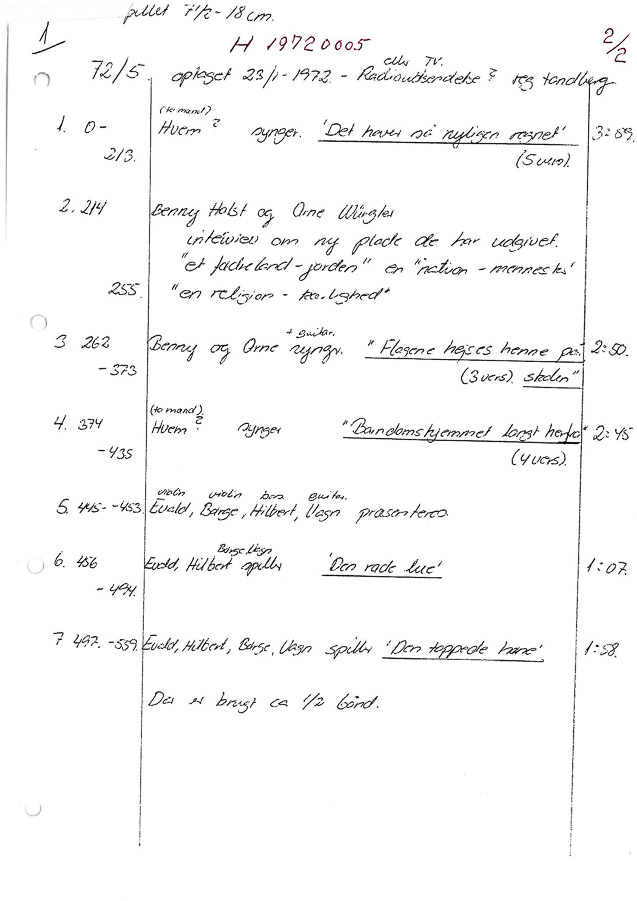 spillet 7 1/2 - 18 cm.
1
H 19720005
2/2
eller TV.
72/5. optaget 23/1-1972. - Radioudsendelse? reg tandberg
(to mand)
1. 0- Hvem? synger. 'Det haver så nyligen regnet' 3:59.
213. (5 vers).
2. 214 Benny Holst og Arne Würgler
interview om ny plade de har udgivet.
"et fædreland - jorden" en "nation - menneske"
255. "en religion - kærlighed"
+ guitar.
3 262 Benny og Arne synger. "Flagene hejses henne på 2:50.
-373 (3 vers). skolen"
(to mand)
4. 374 Hvem? synger "Barndomshjemmet langt herfra" 2:45
-435 (4 vers).
violin violin bas guitar.
5. 445--453. Evald, Børge, Hilbert, Vagn præsenteres
Børge, Vagn
6. 456 Evald, Hilbert spiller 'Den røde lue' 1:07.
-494.
7 497.-559. Evald, Hilbert, Børge, Vagn spiller 'Den toppede høne' 1:58.
Der er brugt ca 1/2 bånd.